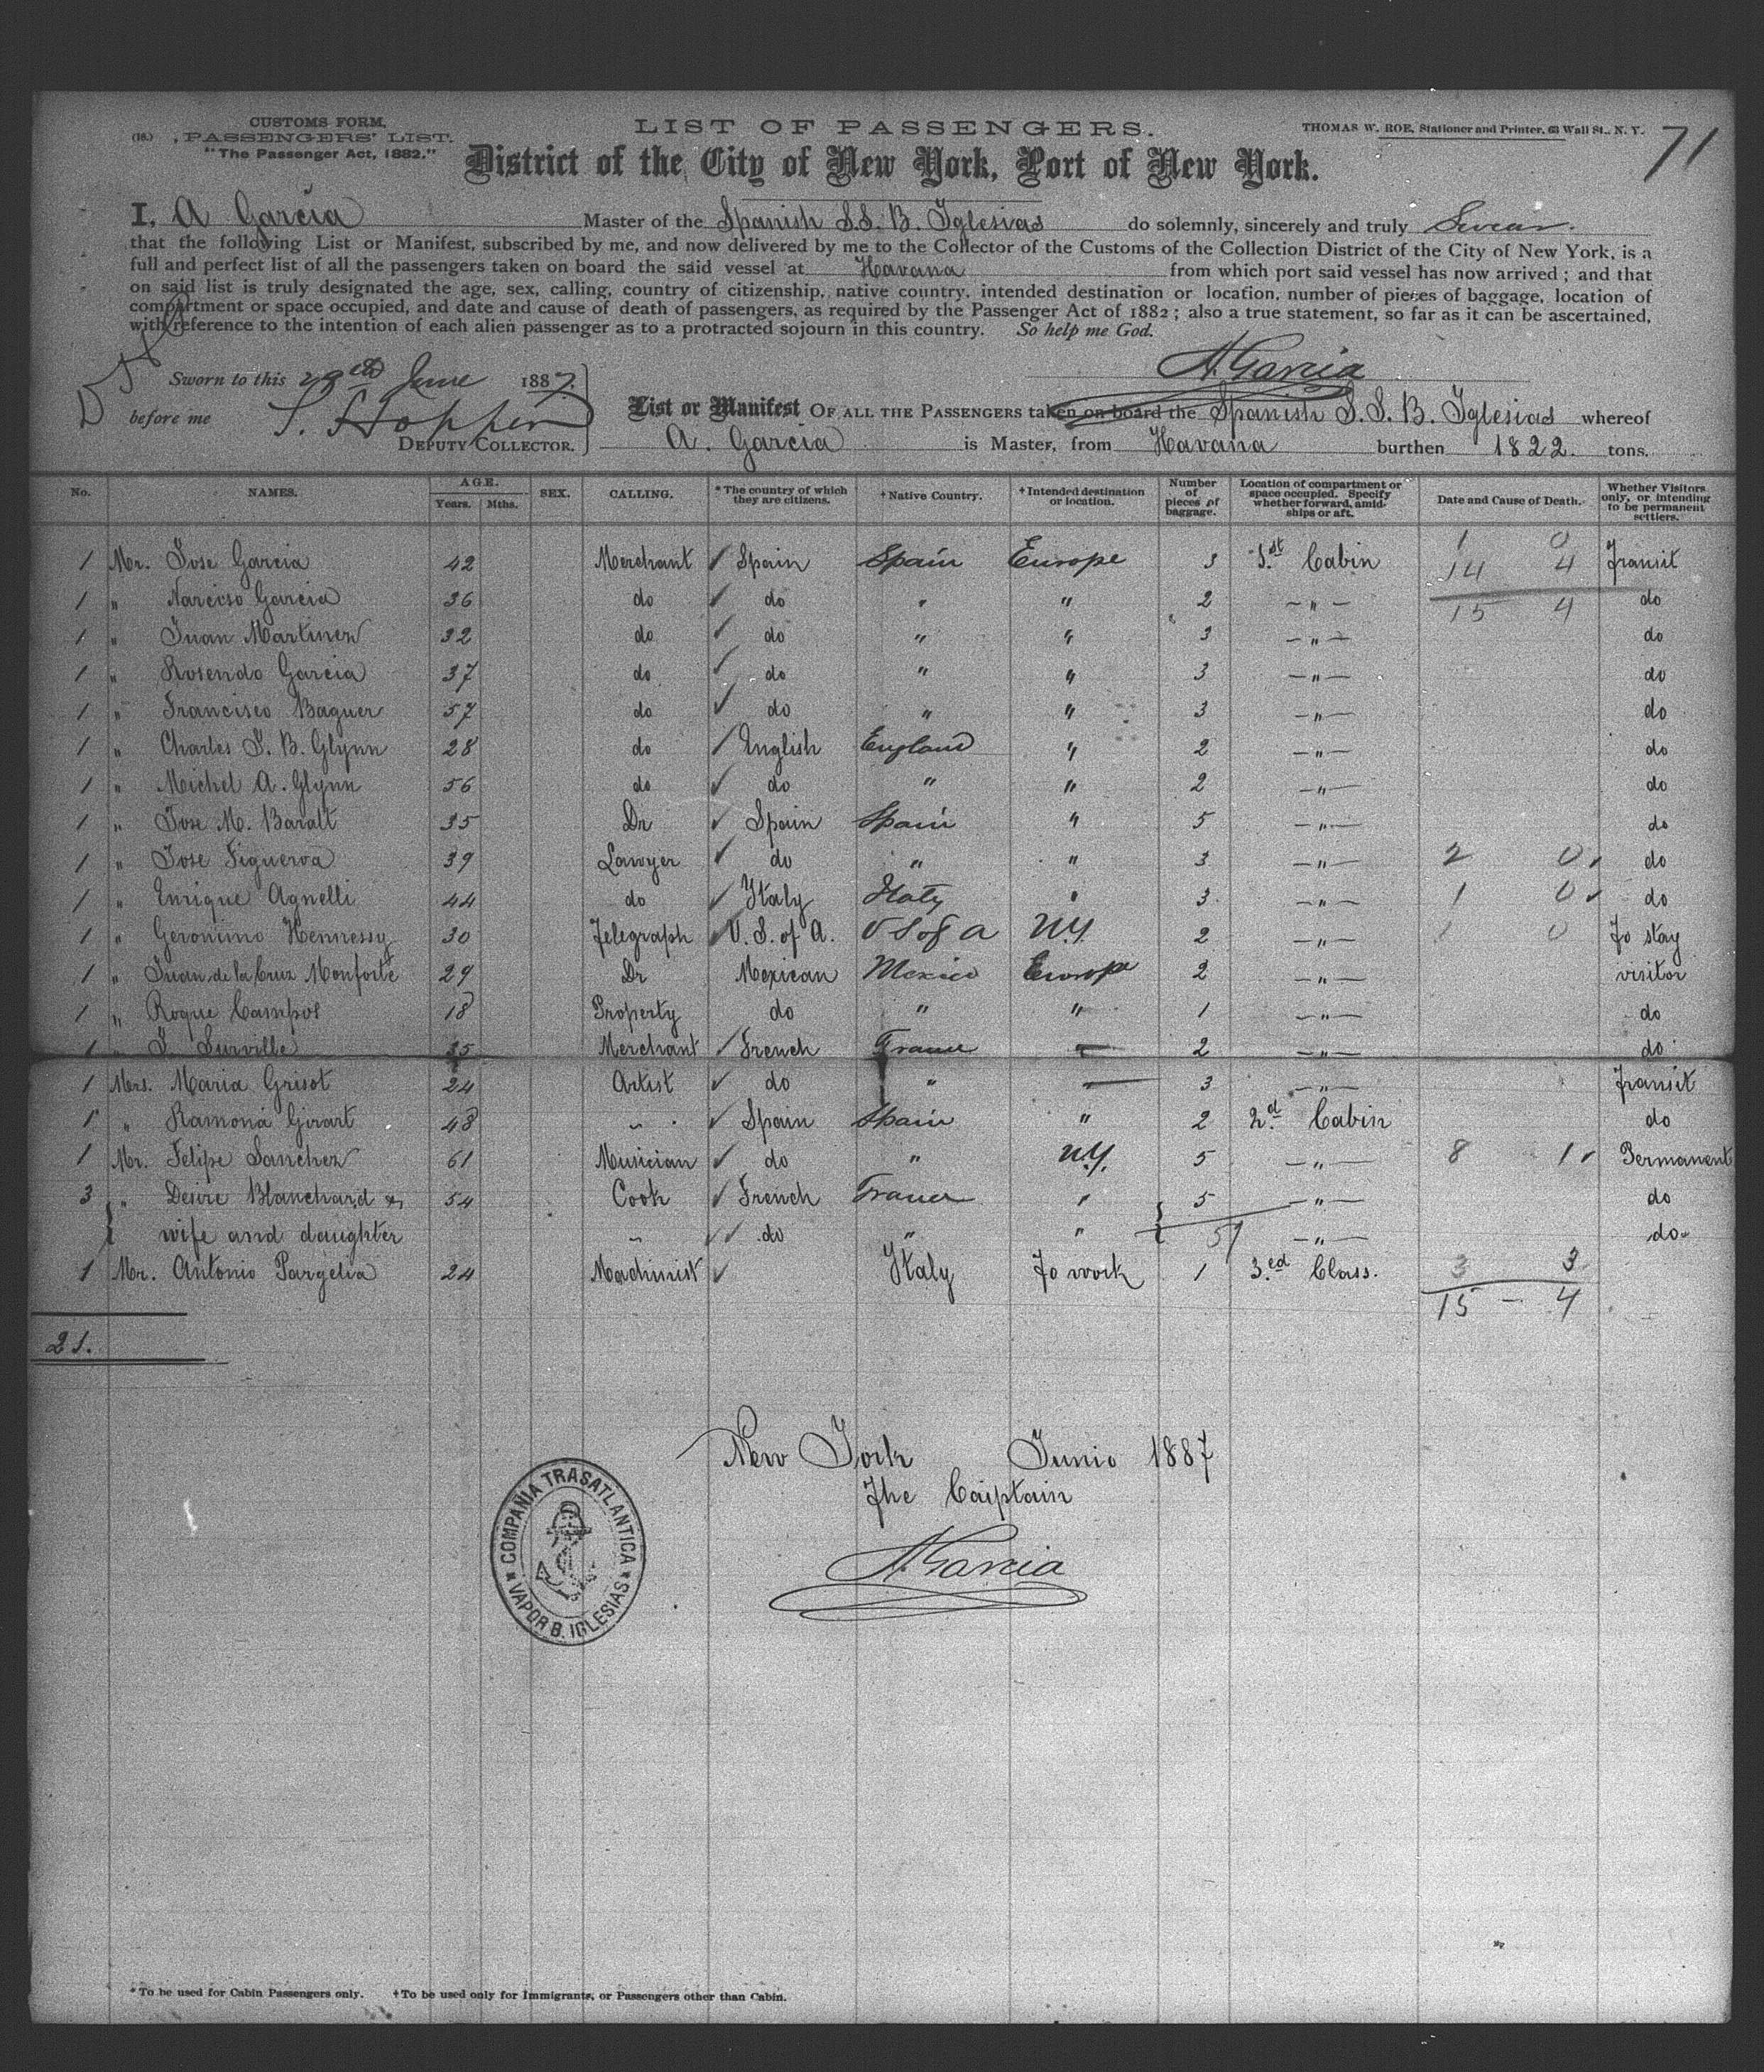 CUSTOMS FORM.
(16.) PASSENGERS' LIST.
"The Passenger Act, 1882."
LIST OF PASSENGERS.
THOMAS W. ROE, Stationer and Printer, 63 Wall St., N. Y.
71
District of the City of New York, Port of New York.
I, A Garcia Master of the Spanish S.S. B. Iglesias do solemnly, sincerely and truly Swear.
that the following List or Manifest, subscribed by me, and now delivered by me to the Collector of the Customs of the Collection District of the City of New York, is a
full and perfect list of all the passengers taken on board the said vessel at Havana from which port said vessel has now arrived; and that
on said list is truly designated the age, sex, calling, country of citizenship, native country, intended destination or location, number of pieces of baggage, location of
compartment or space occupied, and date and cause of death of passengers, as required by the Passenger Act of 1882; also a true statement, so far as it can be ascertained,
with reference to the intention of each alien passenger as to a protracted sojourn in this country. So help me God.
A. Garcia
Sworn to this June 1887.
before me S. Hopper
DEPUTY COLLECTOR.
List or Manifest OF ALL THE PASSENGERS taken on board the Spanish S. S. B. Iglesias whereof
A. Garcia is Master, from Havana burthen 1822. tons.
No. NAMES. AGE. Years. Mths. SEX. CALLING. *The country of which they are citizens. †Native Country. †Intended destination or location. Number of pieces of baggage. Location of compartment or space occupied. Specify whether forward, amidships or aft. Date and Cause of Death. Whether Visitors only, or intending to be permanent settlers.
1 0
1 Mr. Jose Garcia 42 Merchant ✓ Spain Spain Europe 3 1.st Cabin 14 4 Transit
1 " Narciso Garcia 36 do ✓ do " " 2 — " — 15 4 do
1 " Juan Martinez 32 do ✓ do " " 3 — " — do
1 " Rosendo Garcia 37 do ✓ do " " 3 — " — do
1 " Francisco Baguer 57 do ✓ do " " 3 — " — do
1 " Charles S. B. Glynn 28 do ✓ English England " 2 — " — do
1 " Michel A. Glynn 56 do ✓ do " " 2 — " — do
1 " Jose M. Baralt 35 Dr ✓ Spain Spain " 5 — " — do
1 " Jose Figueroa 39 Lawyer ✓ do " " 3 — " — 2 0 ✓ do
1 " Enrique Agnelli 44 do ✓ Italy Italy " 3 — " — 1 0 ✓ do
1 " Geronimo Hennessy 30 Telegraph ✓ U. S. of A. U S of A N.Y. 2 — " — 1 0 To stay
1 " Juan de la Cruz Monforte 29 Dr Mexican Mexico Europe 2 — " — visitor
1 " Roque Campos 18 Property do " " 1 — " — do
1 " J. Surville 35 Merchant ✓ French France " 2 — " — do
1 Mrs. Maria Grisot 24 Artist ✓ do " " 3 — " — Transit
1 " Ramona Girart 48 " ✓ Spain Spain " 2 2.d Cabin do
1 Mr. Felipe Sanchez 61 Musician ✓ do " N.Y. 5 — " — 8 1 ✓ Permanent
3 " Desire Blanchard & 54 Cook ✓ French France " 5 — " — do
wife and daughter " ✓✓ do " " 51 — " — do
1 Mr. Antonio Pargelia 24 Machinist ✓ Italy To work 1 3.ed Class. 3 3
15 - 4
21.
New York Junio 1887
The Caiptain
A. Garcia
COMPAÑIA TRASATLANTICA
VAPOR B. IGLESIAS
*To be used for Cabin Passengers only. †To be used only for Immigrants, or Passengers other than Cabin.